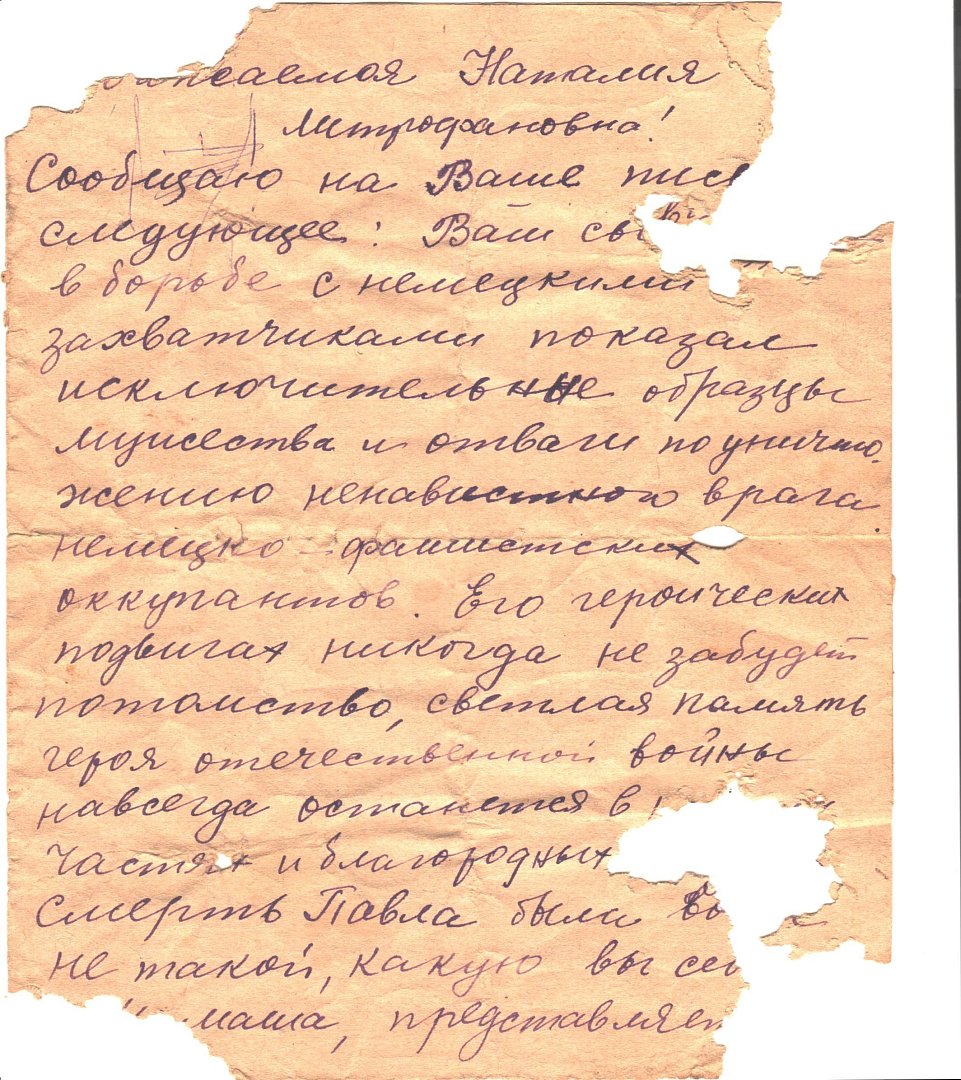 Наталия
Митрофановна!
Сообщаю на Ваше
следующее: Ваш
в борьбе с немецкими
захватчиками показал
исключительнне образцы
мужества и отваги по уничто-
жению ненавистного врага
немецко-фашистских
оккупантов. Его героических
подвигах никогда не забудет
потомство, светлая память
героя отечественной войны
навсегда останется в
частях и благородных
Смерть Павла были
не такой, какую вы
мама,